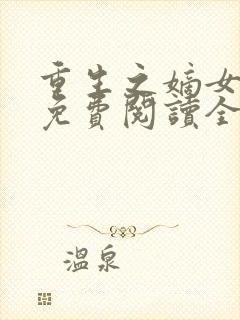 重生之嫡女
免費閱讀全
溫泉